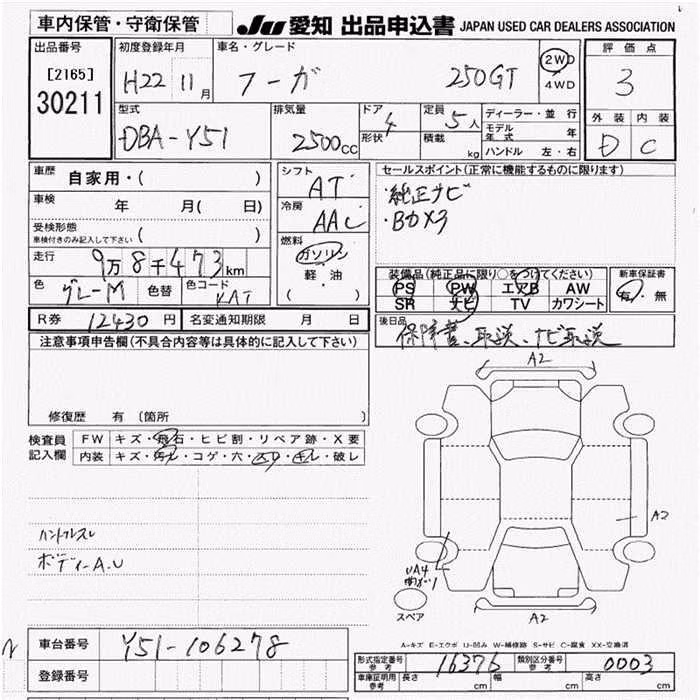 車内保管・守衛保管
JU 愛知 出品申込書 JAPAN USED CAR DEALERS ASSOCIATION
出品番号
[2165]
30211
初度登録年月
H22 11月
車名・グレード
フーガ 250GT
2WD
4WD
評価点
3
外装 内装
D C
型式
DBA-Y51
排気量
2500cc
ドア 4
形状
定員 5人
積載 kg
ディーラー・並行
モデル年式 年
ハンドル 左・右
車歴 自家用・( )
車検 年 月( 日)
受検形態 ( )
車検付きのみ記入して下さい
走行 9万8千473km
色 グレーM 色替 色コード KAT
R券 12430円 名変通知期限 月 日
シフト AT
冷房 AAC
燃料
ガソリン
軽・油
(・ )
セールスポイント(正常に機能するものに限ります)
・純正ナビ
・Bカメラ
装備品(純正品に限り○をつけてください)
PS PW エアB AW
SR ナビ TV カワシート
新車保証書
有・無
後日品
保障書、取説、ナビ取説
注意事項申告欄(不具合内容等は具体的に記入して下さい)
修復歴 有 (箇所 )
検査員記入欄
FW キズ・飛石・ヒビ割・リペア跡・X要
内装 キズ・汚れ・コゲ・穴・スリ・キレ・破レ
ハンドルスレ
ボディーA.U
A2
A2
UA4
A2
スペア
A-キズ E-エクボ U-凹み W-補修跡 S-サビ C-腐食 XX-交換済
車台番号 Y51-106278
登録番号
形式指定番号 参考 16376 類別区分番号 参考 0003
車庫証明用 参考 長さ cm 幅 cm 高さ cm